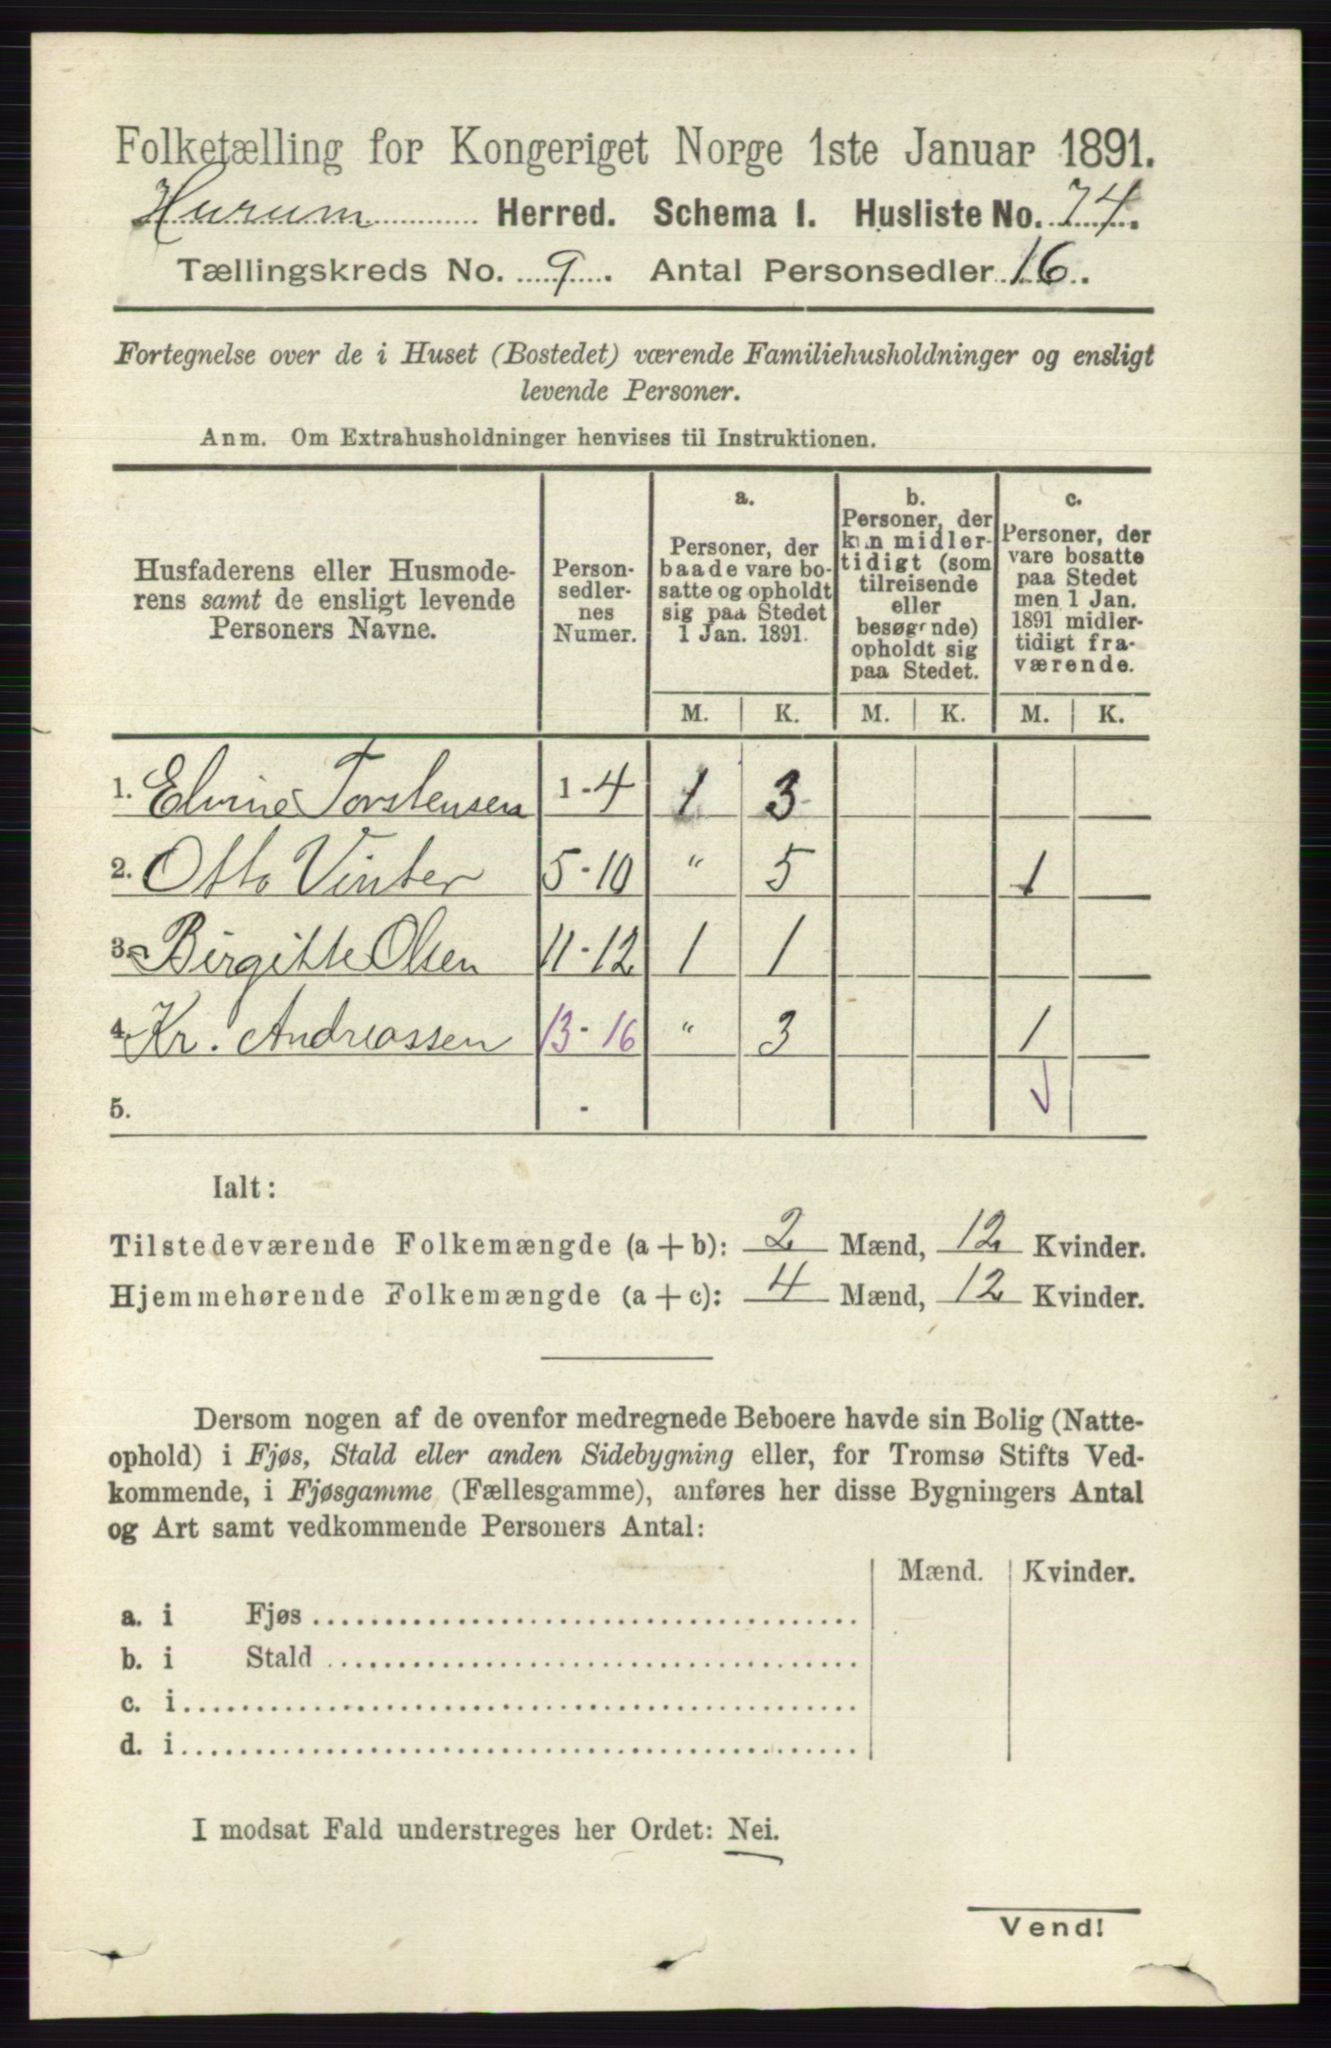 Folketælling for Kongeriget Norge 1ste Januar 1891.
Hurum Herred. Schema I. Husliste No. 74.
Tællingskreds No. 9. Antal Personsedler 16.
Fortegnelse over de i Huset (Bostedet) værende Familiehusholdninger og ensligt
levende Personer.
Anm. Om Extrahusholdninger henvises til Instruktionen.
Husfaderens eller Husmode-
rens samt de ensligt levende
Personers Navne.
Person-
sedler-
nes
Numer.
a.
Personer, der
baade vare bo-
satte og opholdt
sig paa Stedet
1 Jan. 1891.
b.
Personer, der
kun midler-
tidigt (som
tilreisende
eller
besøgende)
opholdt sig
paa Stedet.
c.
Personer, der
vare bosatte
paa Stedet
men 1 Jan.
1891 midler-
tidigt fra-
værende.
M. K. M. K. M. K.
1. Elvine Torstensen 1-4 1 3
2. Otto Vinter 5-10 " 5 1
3. Birgitte Olsen 11-12 1 1
4. Kr. Andreassen 13-16 " 3 1
5. -
Ialt:
Tilstedeværende Folkemængde (a + b): 2 Mænd, 12 Kvinder.
Hjemmehørende Folkemængde (a + c): 4 Mænd, 12 Kvinder.
Dersom nogen af de ovenfor medregnede Beboere havde sin Bolig (Natte-
ophold) i Fjøs, Stald eller anden Sidebygning eller, for Tromsø Stifts Ved-
kommende, i Fjøsgamme (Fællesgamme), anføres her disse Bygningers Antal
og Art samt vedkommende Personers Antal:
Mænd. Kvinder.
a. i Fjøs
b. i Stald
c. i
d. i
I modsat Fald understreges her Ordet: Nei.
Vend!